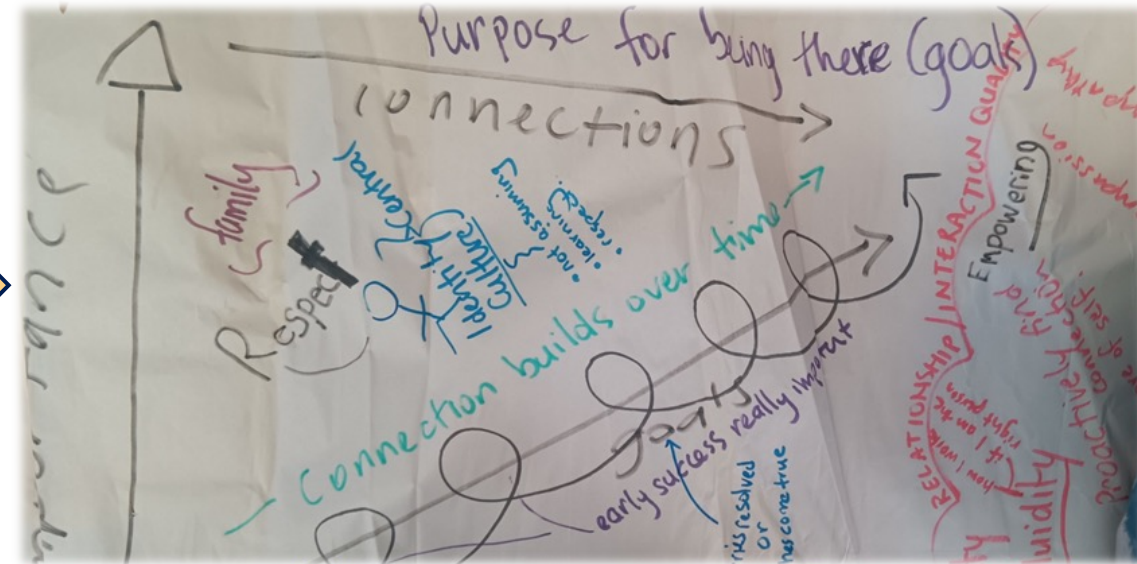 Purpose for being there (goals)
connections
family
Respect
Central
Identity
(culture)
• not assuming
• learning
• respect
Connection builds over time
goals
early success really important
resolved
or
come true
RELATIONSHIP/INTERACTION QUALITY
EMPOWERING
Proactively find
connection
of self.
how I work
if I am the
right person